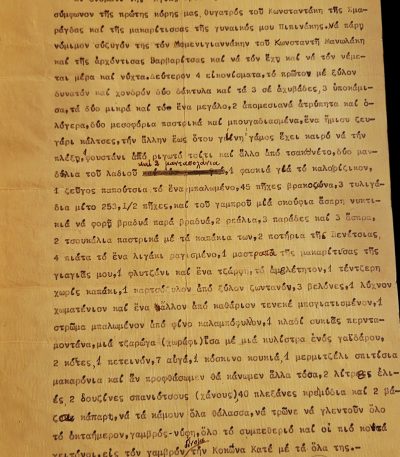 σύμφωνον τῆς πρώτης κόρης μας, θυγατρός τοῦ Κωνσταντάκη τῆς Σμα-
ράγδας καί τῆς μακαρίτισσας τῆς γυναικός μου Πιπινάκης. Νά πάρῃ
νόμιμον σύζυγόν της τόν Μαμενιγιαννάκην τοῦ Κωνσταντῆ Μανωλάκη
καί τῆς ἀρχόντισας Βαρβαρίτσας καί νά τόν ἔχῃ καί νά τόν νέμε-
ται μέρα καί νύχτα. Δεύτερον 4 εἰκονίσματα, τό πρῶτον μέ ξύλον
δυνατόν καί χονδρόν δύο δάκτυλα καί τά 3 σέ ἀχυράδες, 3 ὑποκάμι-
σα, τά δύο μικρά καί τόν ἕνα μεγάλο, 2 ἀπομεσιανά ἀτρύπητα καί ὁ-
λόγερα, δύο μεσοφόρια παστρικά καί μπουγαδιασμένα, ἕνα ἥμισυ ζευ-
γάρι κάλτσες, τήν ἄλλην ἕως ὅτου γείνῃ γάμος ἔχει καιρό νά τήν
πλέξῃ, φουστάνι ἀπό ριγωτό τσίτι καί ἄλλο ἀπό τσακνέτο, δύο μαν-
δύλια τοῦ λαδιοῦ καί 2 , 1 φασκιά γιά τό καλορίζικον,
1 ζεῦγος παπούτσια τό ἕνα μπαλωμένο, 45 πῆχες βρακοζώνα, 3 τυλιγά-
δια μίτο 253, 1/2 πῆχες, καί τοῦ γαμπροῦ μιά σκούφια ἄσπρη νυκτι-
κιά νά φορῇ βραδυά παρά βραδυά, 2 ρεάλια, 3 παράδες καί 3 ἄσπρα,
2 τσουκάλια παστρικά μέ τά καπάκια των, 2 ποτήρια τῆς Βενέτσιας,
4 πιάτα τό ἕνα λιγάκι ραγισμένο, 1 μαστραπᾶ τῆς μακαρίτισας τῆς
γιαγιᾶς μου, 1 φλυτζάνι καί ἕνα τζάρφη, τό ἀμελέτητον, 1 τέντζερη
χωρίς καπάκι, 1 ξύλον ζωντανόν, 3 βελόνες, 1 λύχνον
χωματένιον καί ἕνα ἄλλον ἀπό καθάριον τενεκέ μπογιατισμένον, 1
στρῶμα μπαλωμένον ἀπό φῖνο καλαμπόφυλλον, 1 κλαδί συκιᾶς περντα-
μοντάνα, μιά τζαρῶγα (χωράφι) ἴσα μέ μιά κυλίστρα ἑνός γαϊδάρου,
2 κότες, 1 πετεινόν, 7 αὐγά, 1 κόσκινο κουκιά, 1 μερμιτζέλι σπιτίσια
μακαρόνια καί ἄν προφθάσωμεν θά κάνωμεν ἄλλα τόσα, 2 λίτρες ἐλι-
ές 2 δουζίνες σπανιότσους (χάνους) 40 πλεξάνες κρεμύδια καί 2 βά-
ζα κάπαρη, νά τά κάμουν ὅλα θάλασσα, νά τρῶνε νά γλεντοῦν ὅλο
τό ὀκταήμερον, γαμβρός-νύφη, ὅλο τό συμπεθεριό καί οἱ πιό κοντά
γειτόνοι, εἰς τόν γαμβρόν τήν Κοκῶνα Κατέ μέ τά ὅλα της.-